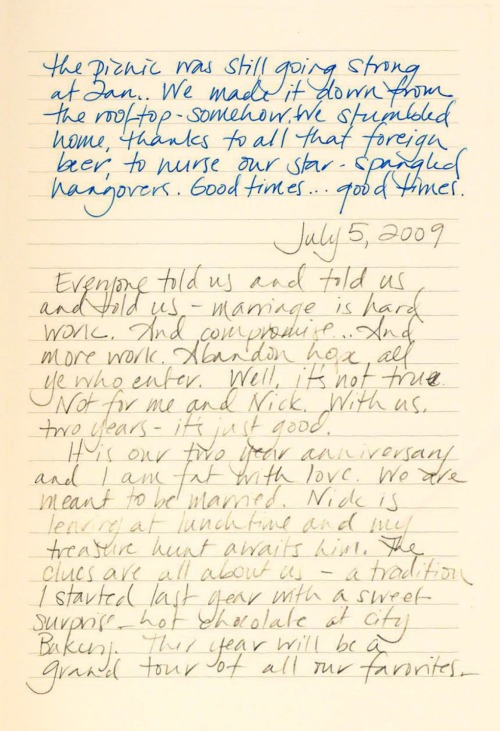 the picnic was still going strong
at 2am.. We made it down from
the rooftop - somehow. We stumbled
home, thanks to all that foreign
beer, to nurse our star-spangled
hangovers. Good times... good times.
July 5, 2009
Everyone told us and told us
and told us - marriage is hard
work. And compromise... And
more work. Abandon hope, all
ye who enter. Well, it's not true.
Not for me and Nick. With us,
two years - it's just good.
It is our two year anniversary
and I am fat with love. We are
meant to be married. Nick is
leaving at lunchtime and my
treasure hunt awaits him. The
clues are all about us - a tradition
I started last year with a sweet
surprise - hot chocolate at City
Bakery. This year will be a
grand tour of all our favorites -